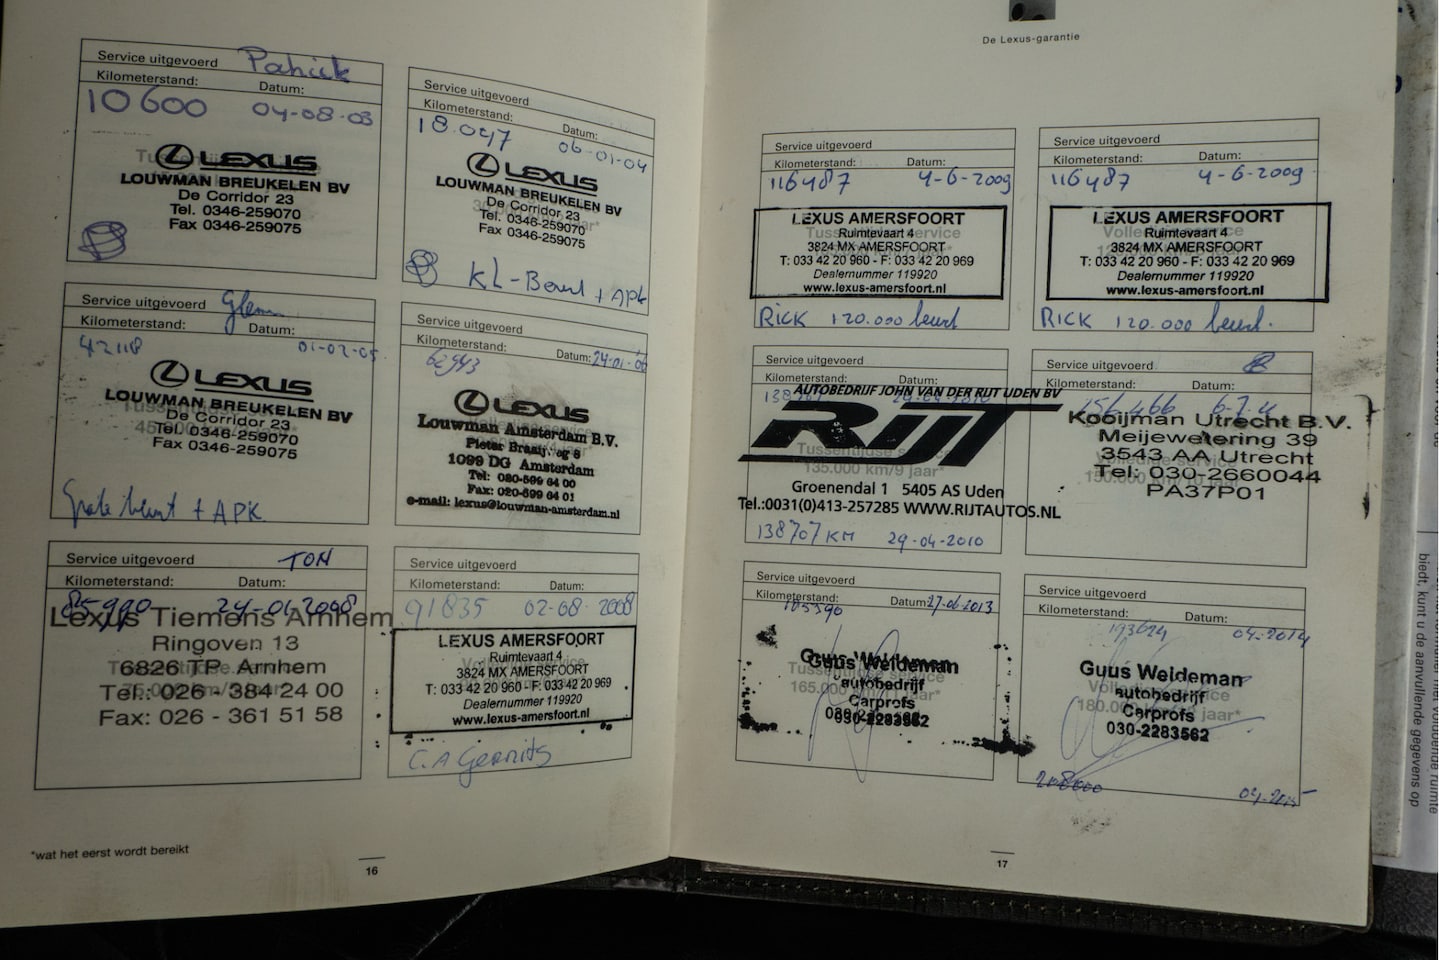 Service uitgevoerd Patrick
Kilometerstand: Datum:
10600 04-08-03
LEXUS
LOUWMAN BREUKELEN BV
De Corridor 23
Tel. 0346-259070
Fax 0346-259075
Service uitgevoerd
Kilometerstand: Datum:
18.047 06-01-04
LEXUS
LOUWMAN BREUKELEN BV
De Corridor 23
Tel. 0346-259070
Fax 0346-259075
KL-Beurt + APK
Service uitgevoerd Glenn
Kilometerstand: Datum:
42118 01-02-05
LEXUS
LOUWMAN BREUKELEN BV
De Corridor 23
Tel. 0346-259070
Fax 0346-259075
Grote beurt + APK
Service uitgevoerd
Kilometerstand: Datum: 24-01-06
62943
LEXUS
Louwman Amsterdam B.V.
Pieter Braaij
1099 DG Amsterdam
Tel: 020-599 64 00
Fax: 020-699 64 01
e-mail: lexus@louwman-amsterdam.nl
Service uitgevoerd TON
Kilometerstand: Datum:
24-01-2008
Lexus Tiemens Arnhem
Ringoven 13
6826 TP Arnhem
Tel.: 026 - 384 24 00
Fax: 026 - 361 51 58
Service uitgevoerd
Kilometerstand: Datum:
91835 02-08-2008
LEXUS AMERSFOORT
Ruimtevaart 4
3824 MX AMERSFOORT
T: 033 42 20 960 - F: 033 42 20 969
Dealernummer 119920
www.lexus-amersfoort.nl
C.A Gerrits
*wat het eerst wordt bereikt
16
De Lexus-garantie
Service uitgevoerd
Kilometerstand: Datum:
116487 4-6-2009
LEXUS AMERSFOORT
Ruimtevaart 4
3824 MX AMERSFOORT
T: 033 42 20 960 - F: 033 42 20 969
Dealernummer 119920
www.lexus-amersfoort.nl
RICK 120.000 beurt
Service uitgevoerd
Kilometerstand: Datum:
116487 4-6-2009
Volledige service
LEXUS AMERSFOORT
Ruimtevaart 4
3824 MX AMERSFOORT
T: 033 42 20 960 - F: 033 42 20 969
Dealernummer 119920
www.lexus-amersfoort.nl
RICK 120.000 beurt.
Service uitgevoerd
Kilometerstand: Datum:
AUTOBEDRIJF JOHN VAN DER RIJT UDEN BV
RIJT
Tussentijdse service
135.000 km/9 jaar*
Groenendal 1 5405 AS Uden
Tel.:0031(0)413-257285 WWW.RIJTAUTOS.NL
138707 KM 29-04-2010
Service uitgevoerd
Kilometerstand: Datum:
156.466
Kooijman Utrecht B.V.
Meijewetering 39
3543 AA Utrecht
Tel: 030-2660044
PA37P01
Service uitgevoerd
Kilometerstand: Datum: 27-06-2013
Guus Weideman
autobedrijf
Carprofs
030-2283562
Service uitgevoerd
Kilometerstand: Datum:
193624 04-2014
Guus Weideman
autobedrijf
Carprofs
030-2283562
208000 04-2015
17
biedt, kunt u de aanvullende gegevens op